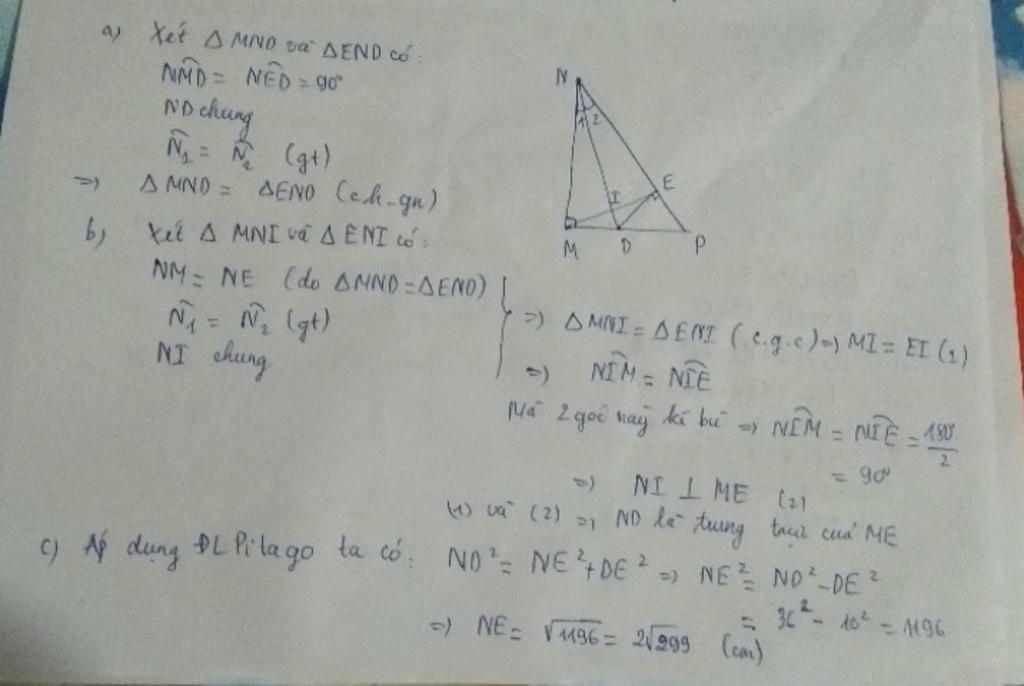 a) Xét Δ MND và ΔEND có:
NMD̂ = NÊD = 90°
ND chung
N̂₁ = N̂₂ (gt)
=> Δ MND = ΔEND (c.h-gn)
b) Xét Δ MNI và Δ ENI có:
NM = NE (do ΔMND = ΔEND)
N̂₁ = N̂₂ (gt)
NI chung
=> Δ MNI = Δ ENI (c.g.c) => MI = EI (1)
=> NÎM = NÎE
Mà 2 góc này kề bù => NÎM = NÎE = 180°/2
= 90°
=> NI ⊥ ME (2)
(1) và (2) => ND là trung trực của ME
c) Áp dụng ĐL Pitago ta có: ND² = NE² + DE² => NE² = ND² - DE²
= 36² - 10² = 1196
=> NE = √1196 = 2√299 (cm)
N
1 2
E
I
M D P